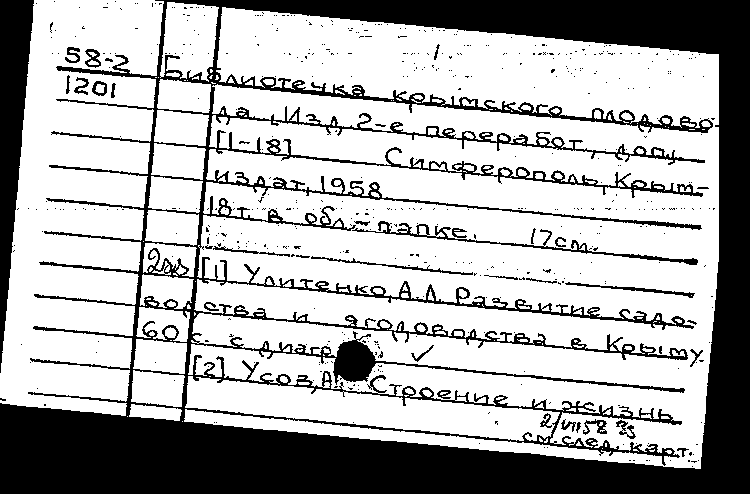 1
58-2 Библиотечка крымского плодово-
1201
да, Изд. 2-е, переработ., доп.
[1-18] Симферополь, Крым-
издат, 1958
18т. в обл.-папке. 17см.
[1] Улитенко, А.Л. Развитие садо-
водства и ягодоводства в Крыму
60 с. с диагр
[2]. Усов, А Строение и жизнь
2/VII 58
см. след. карт.